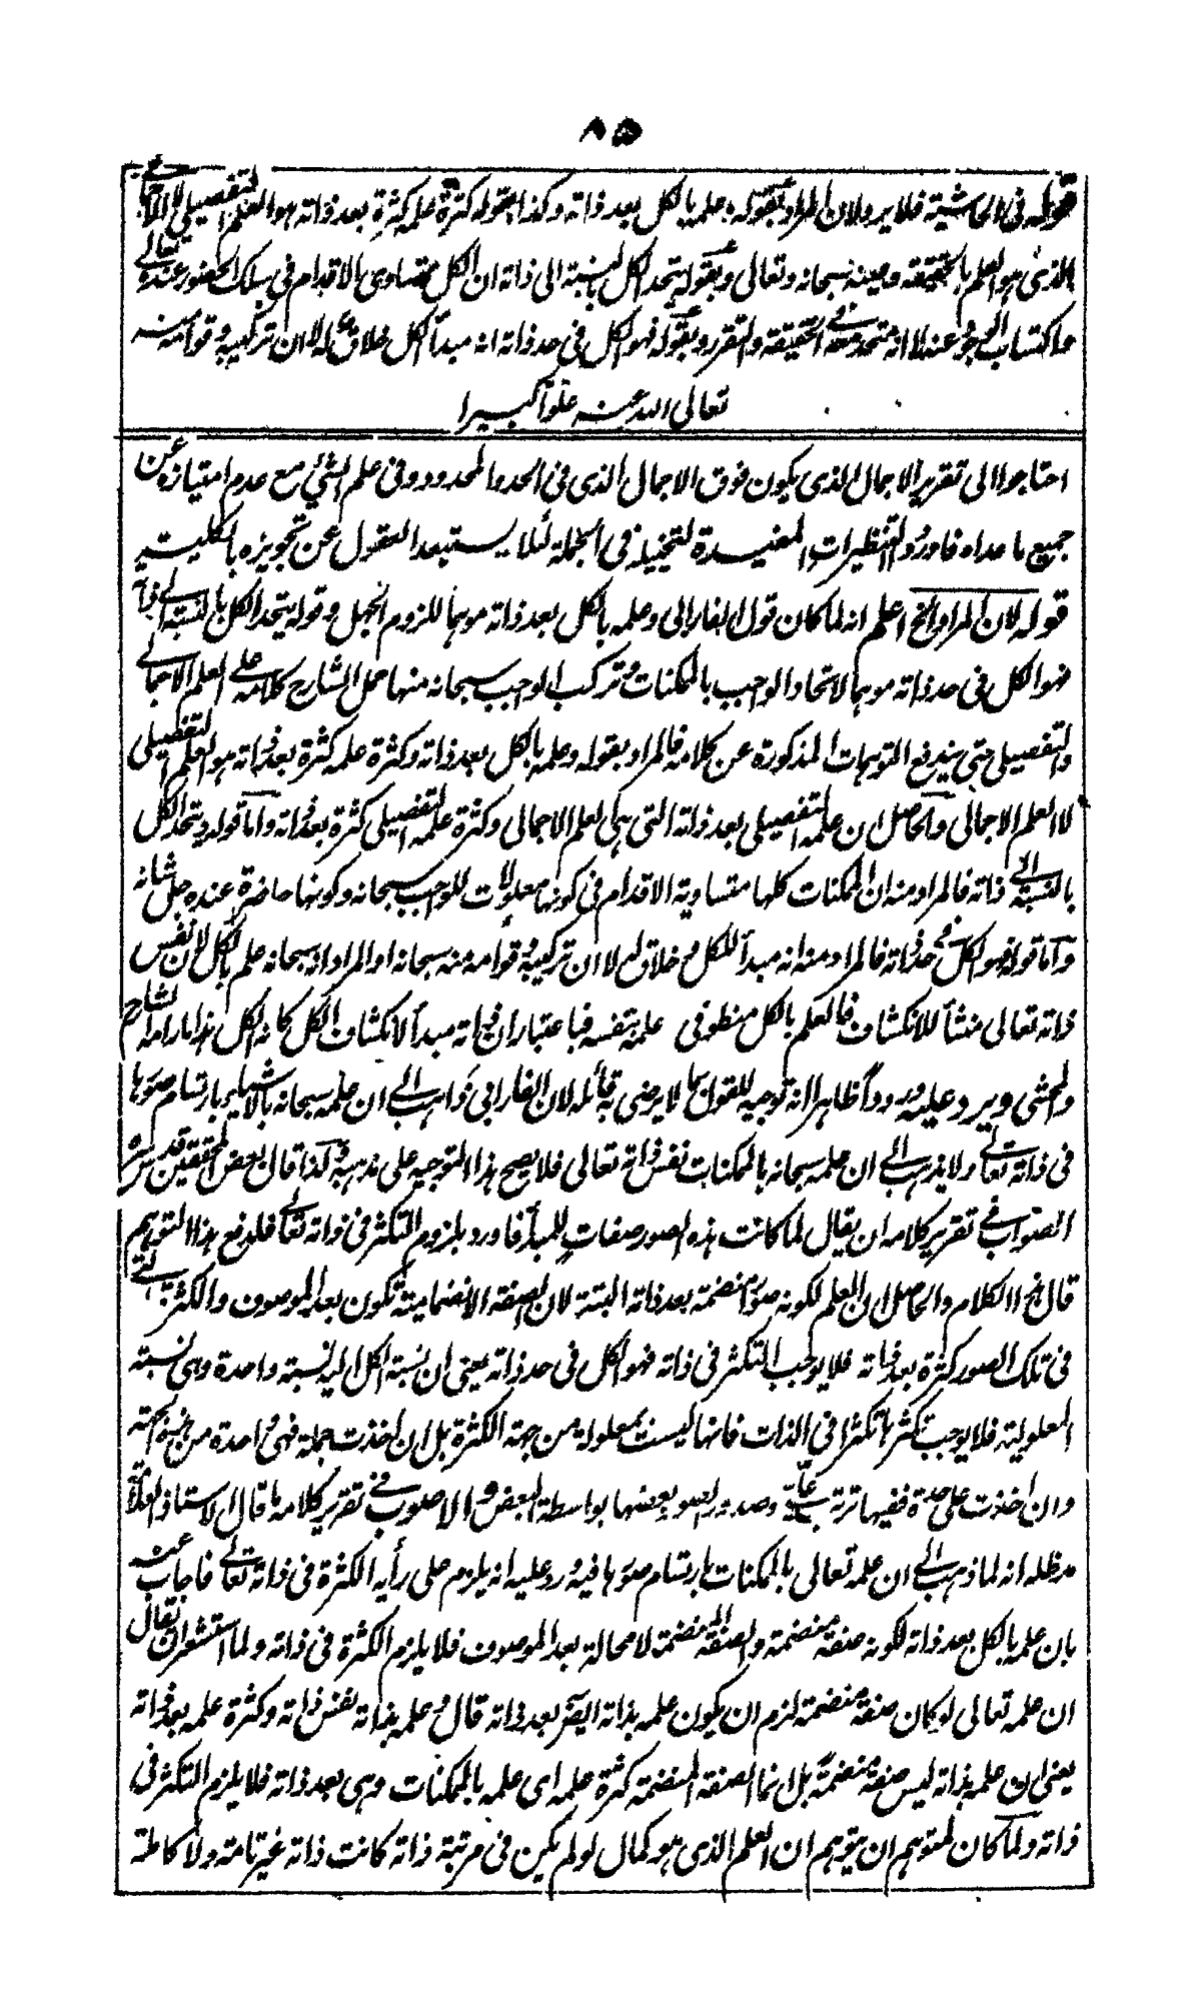 ٨٥
قوله فى الحاشية فلا يرد لان المراد بقوله وعلمه بالكل بعد ذاته وكذا بقوله كثرة علمه كثرة بعد ذاته هو العلم التفصيلى لا الاجمالى
الذى هو العلم بالحقيقة وعينه سبحانه وتعالى وبقوله يتحد الكل بالنسبة الى ذاته ان الكل متساوى الاقدام فى سلك الحضور عنده تعالى
واكتساب الوجود عنه لا انه متحد معه فى الحقيقة والتقرر وبقوله فهو الكل فى حد ذاته انه مبدأ الكل وخلاق له لا ان تركيبه وقوامه منه
تعالى الله عنه علوا كبيرا
احتاجوا الى تقرير الاجمال الذى يكون فوق الاجمال الذى فى الحد والمحدود وفى علم الشئ مع عدم امتيازه عن
جميع ما عداه فاوردوا التنظيرات المفيدة لتخييله فى الجملة لئلا يستبعد العقول عن تجويزه بالكلية
قوله لان المراد الخ اعلم انه لما كان قول الفارابى وعلمه بالكل بعد ذاته موهما للزوم الجهل وقوله يتحد الكل بالنسبة الى ذاته
فهو الكل فى حد ذاته موهما لاتحاد الواجب بالممكنات وتركب الواجب سبحانه منها حمل الشارح كلامه على العلم الاجمالى
والتفصيلى حتى يندفع التوهمات المذكورة عن كلامه فالمراد بقوله وعلمه بالكل بعد ذاته وكثرة علمه كثرة بعد ذاته هو العلم التفصيلى
لا العلم الاجمالى والحاصل ان علمه التفصيلى بعد ذاته التى هى العلم الاجمالى وكثرة علمه التفصيلى كثرة بعد ذاته واما قوله ويتحد الكل
بالنسبة الى ذاته فالمراد منه ان الممكنات كلها متساوية الاقدام فى كونها معلولات للواجب سبحانه وكونها حاضرة عنده جل شانه
واما قوله فهو الكل فى حد ذاته فالمراد منه انه مبدأ للكل وخلاق له لا ان تركيبه وقوامه منه سبحانه او المراد انه سبحانه علم بالكل لان نفس
ذاته تعالى منشأ للانكشاف فالعلم بالكل منطو فى علمه بنفسه فباعتبار ان ذاته مبدأ لانكشاف الكل كانه الكل هذا ما رامه الشارح
والمحشى ويرد عليه ورودا ظاهرا انه توجيه للقول بما لا يرضى به قائله لان الفارابى ذاهب الى ان علمه سبحانه بالاشياء بارتسام صورها
فى ذاته تعالى ولا يذهب الى ان علمه سبحانه بالممكنات نفس ذاته تعالى فلا يصح هذا التوجيه على مذهبه ولذا قال بعض المحققين قدس سره
الصواب فى تقرير كلامه ان يقال لما كانت هذه الصور صفات للمبدأ فاورد بلزوم التكثر فى ذاته تعالى فلدفع هذا التوهم
قال هذا الكلام والحاصل ان العلم لكونه صورا منضمة بعد ذاته البتة لان الصفة الانضمامية تكون بعد الموصوف والكثرة التى
فى تلك الصور كثرة بعد ذاته فلا يوجب التكثر فى ذاته فهو الكل فى حد ذاته يعنى ان نسبة الكل اليه نسبة واحدة وهى نسبة
المعلولية فلا يوجب تكثرها تكثرا فى الذات فانها ليست بمعلولة من جهة الكثرة بل ان اخذت جملة فهى واحدة من هذه الجهة
وان اخذت على حدة ففيها ترتب على وصدور بعضها بواسطة البعض والاصوب فى تقرير كلامه ما قال الاستاذ العلامة
مد ظله انه لما ذهب الى ان علمه تعالى بالممكنات بارتسام صورها فيه ورد عليه انه يلزم على رأيه الكثرة فى ذاته تعالى فاجاب عنه
بان علمه بالكل بعد ذاته لكونه صفة منضمة والصفة المنضمة لا محالة بعد الموصوف فلا يلزم الكثرة فى ذاته ولما استشعر ان يقال
ان علمه تعالى لو كان صفة منضمة لزم ان يكون علمه بذاته ايضا بعد ذاته قال وعلمه بذاته نفس ذاته وكثرة علمه بعد ذاته
يعنى ان علمه بذاته ليس صفة منضمة بل انما الصفة المنضمة كثرة علمه اى علمه بالممكنات وهى بعد ذاته فلا يلزم التكثر فى
ذاته ولما كان لمتوهم ان يتوهم ان العلم الذى هو كمال لو لم يكن فى مرتبة ذاته كانت ذاته غير تامة ولا كاملة